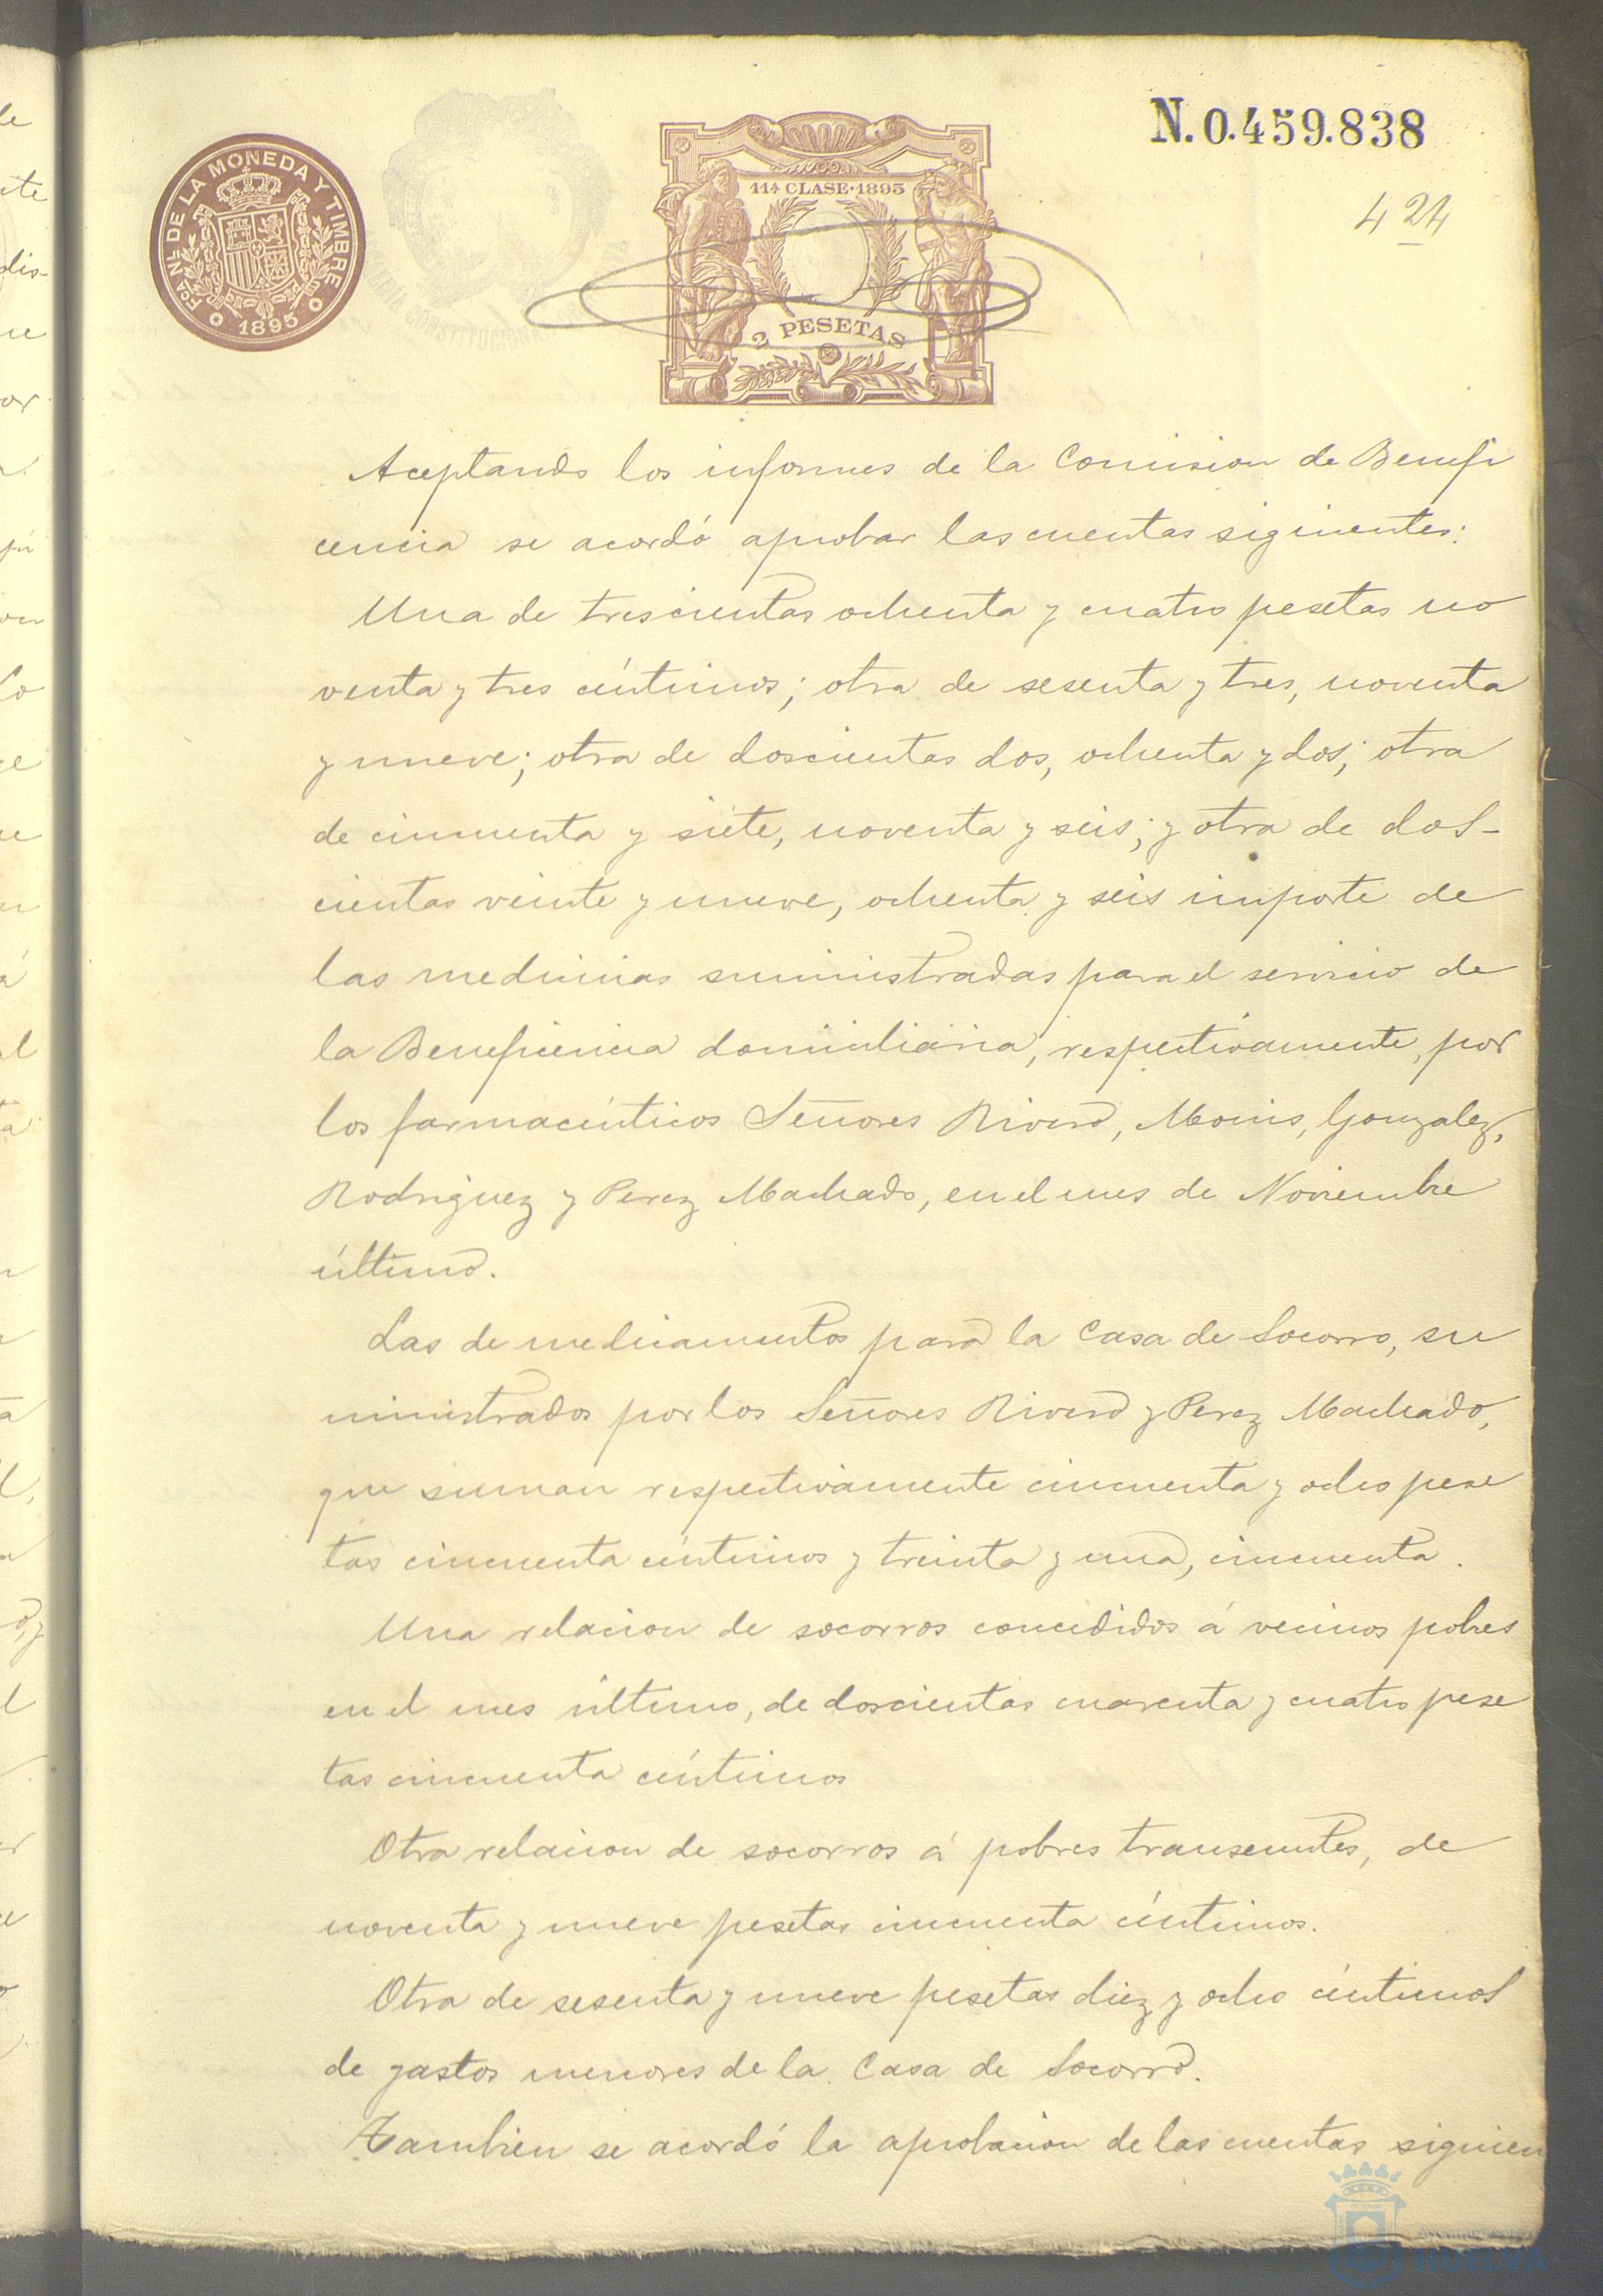 N. 0.459.838
424
FCA. NL. DE LA MONEDA Y TIMBRE
1895
11ª CLASE·1895
2 PESETAS
Aceptando los informes de la Comision de Benefi
cencia se acordó aprobar las cuentas siguientes:
Una de trescientas ochenta y cuatro pesetas no
venta y tres céntimos; otra de sesenta y tres, noventa
y nueve; otra de doscientas dos, ochenta y dos; otra
de cincuenta y siete, noventa y seis; y otra de dos-
cientas veinte y nueve, ochenta y seis importe de
las medicinas suministradas para el servicio de
la Beneficencia domiciliaria, respectivamente, por
los farmacéuticos Señores Rivero, Monis, Gonzalez,
Rodriguez y Perez Machado, en el mes de Noviembre
último.
Las de medicamentos para la Casa de Socorro, su
ministrados por los Señores Rivero y Perez Machado,
que suman respectivamente cincuenta y ocho pese
tas cincuenta céntimos y treinta y una, cincuenta.
Una relacion de socorros concedidos á vecinos pobres
en el mes último, de doscientas cuarenta y cuatro pese
tas cincuenta céntimos
Otra relacion de socorros á pobres transeuntes, de
noventa y nueve pesetas cincuenta céntimos.
Otra de sesenta y nueve pesetas diez y ocho céntimos
de gastos menores de la Casa de Socorro.
Tambien se acordó la aprobacion de las cuentas siguien
Ayuntamiento
HUELVA